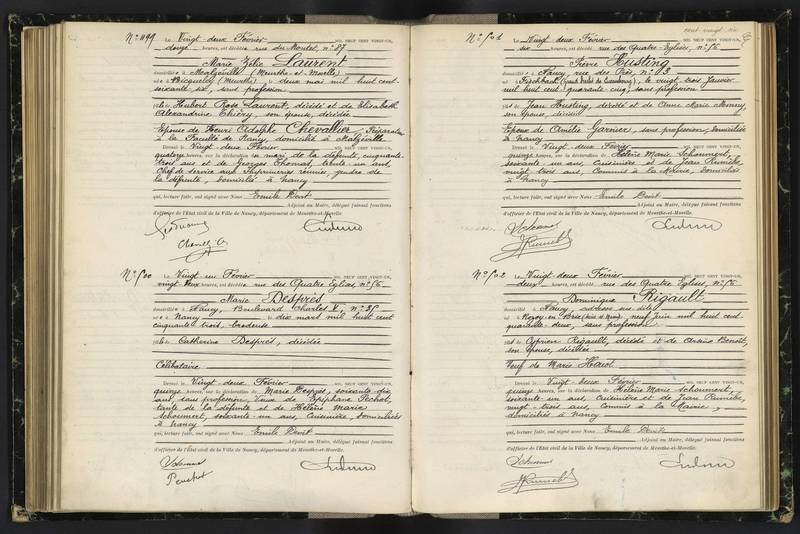 N° 499 Le Vingt deux Février MIL NEUF CENT VINGT-UN,
douze heures, est décédée rue du Montet, n° 87
Marie Zélie Laurent
domiciliée à Malzéville (Meurthe-et-Moselle)
née à Bicqueley (Meurthe) le deux mai mil huit cent
soixante six, sans profession
fille de Hubert Rose Laurent, décédé et de Elisabeth
Alexandrine Thiéry, son épouse, décédée
Epouse de Henri Adolphe Chevallier, Préparateur
à la Faculté de Nancy, domicilié à Malzéville
Dressé le Vingt deux Février MIL NEUF CENT VINGT-UN,
quatorze heures, sur la déclaration du mari de la défunte, cinquante
trois ans et de Georges Thomas, trente un ans,
Chef de service aux Imprimeries réunies, gendre de
la défunte, domicilié à Nancy
qui, lecture faite, ont signé avec Nous Emile Devit
Adjoint au Maire, délégué faisant fonctions
d'officier de l'Etat civil de la Ville de Nancy, département de Meurthe-et-Moselle.
N° 500 Le Vingt un Février MIL NEUF CENT VINGT-UN,
vingt deux heures, est décédée rue des Quatre Eglises, n° 56
Marie Desprès
domiciliée à Nancy, Boulevard Charles V, n° 35
née à Nancy le dix mars mil huit cent
cinquante trois, brodeuse
fille de Catherine Desprès, décédée
Célibataire
Dressé le Vingt deux Février MIL NEUF CENT VINGT-UN,
quinze heures, sur la déclaration de Marie Desprès, soixante dix
ans, sans profession, Veuve de Epiphane Pechot,
tante de la défunte et de Hélène Marie
Schoument, soixante un ans, Cuisinière, domiciliées
à Nancy
qui, lecture faite, ont signé avec Nous Emile Devit
Adjoint au Maire, délégué faisant fonctions
d'officier de l'Etat civil de la Ville de Nancy, département de Meurthe-et-Moselle.
N° 501 Le Vingt deux Février MIL NEUF CENT VINGT-UN,
six heures, est décédé rue des Quatre-Eglises, n° 56
Pierre Husting
domicilié à Nancy, rue des Prés, n° 23
né à Fischbach, le vingt trois Janvier
mil huit cent quarante cinq, sans profession
fils de Jean Husting, décédé et de Anne Marie
son épouse, décédée
Epoux de Amélie Garnier, sans profession, domiciliée
à Nancy
Dressé le Vingt deux Février MIL NEUF CENT VINGT-UN,
quinze heures, sur la déclaration de Hélène Marie Schoument,
soixante un ans, Cuisinière et de Jean Rumèbe,
vingt trois ans, Commis à la Mairie, domiciliés
à Nancy
qui, lecture faite, ont signé avec Nous Emile Devit
Adjoint au Maire, délégué faisant fonctions
d'officier de l'Etat civil de la Ville de Nancy, département de Meurthe-et-Moselle.
N° 502 Le Vingt deux Février MIL NEUF CENT VINGT-UN,
deux heures, est décédé rue des Quatre Eglises, n° 56
Dominique Rigault
domicilié à Nancy, adresse au dite
né à neuf Juin mil huit cent
quarante deux, sans profession
fils de Cyprien Rigault, décédé et de Benoit,
son épouse, décédée
Veuf de Marie
Dressé le Vingt deux Février MIL NEUF CENT VINGT-UN,
quinze heures, sur la déclaration de Hélène Marie Schoument,
soixante un ans, Cuisinière et de Jean Rumèbe,
vingt trois ans, Commis à la Mairie,
domiciliés à Nancy
qui, lecture faite, ont signé avec Nous Emile Devit
Adjoint au Maire, délégué faisant fonctions
d'officier de l'Etat civil de la Ville de Nancy, département de Meurthe-et-Moselle.